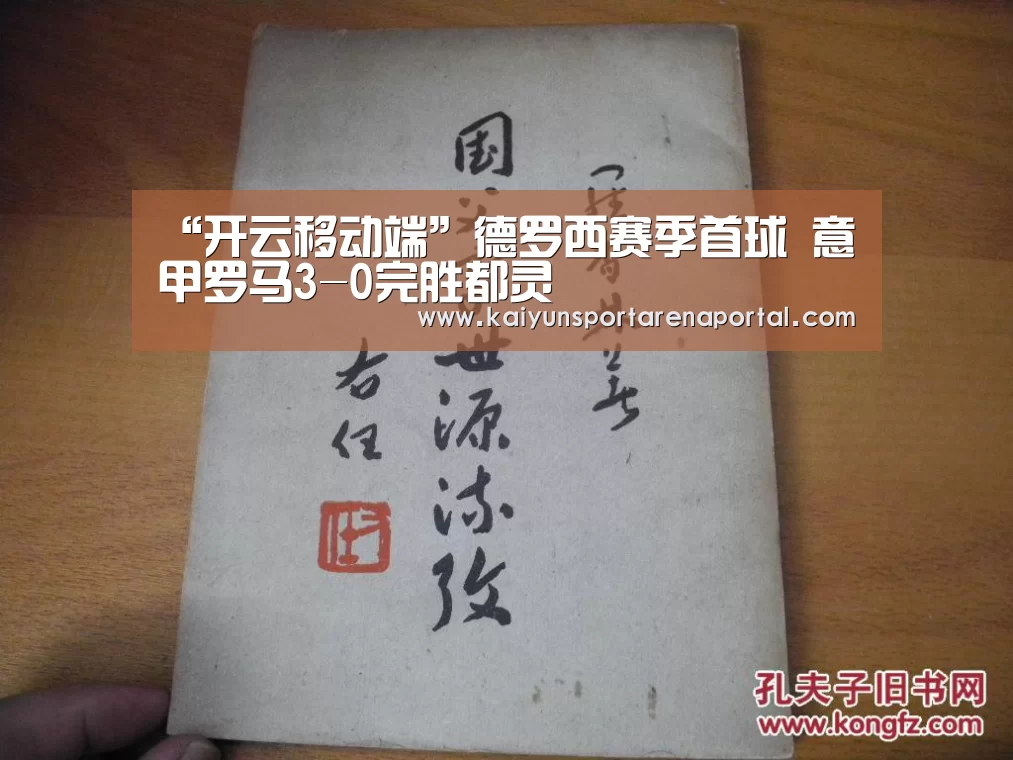 “开云移动端”德罗西赛季首球 意
甲罗马3-0完胜都灵
www.kaiyunsportarenaportal.com
国父家世源流攷
右任
孔夫子旧书网
www.kongfz.com